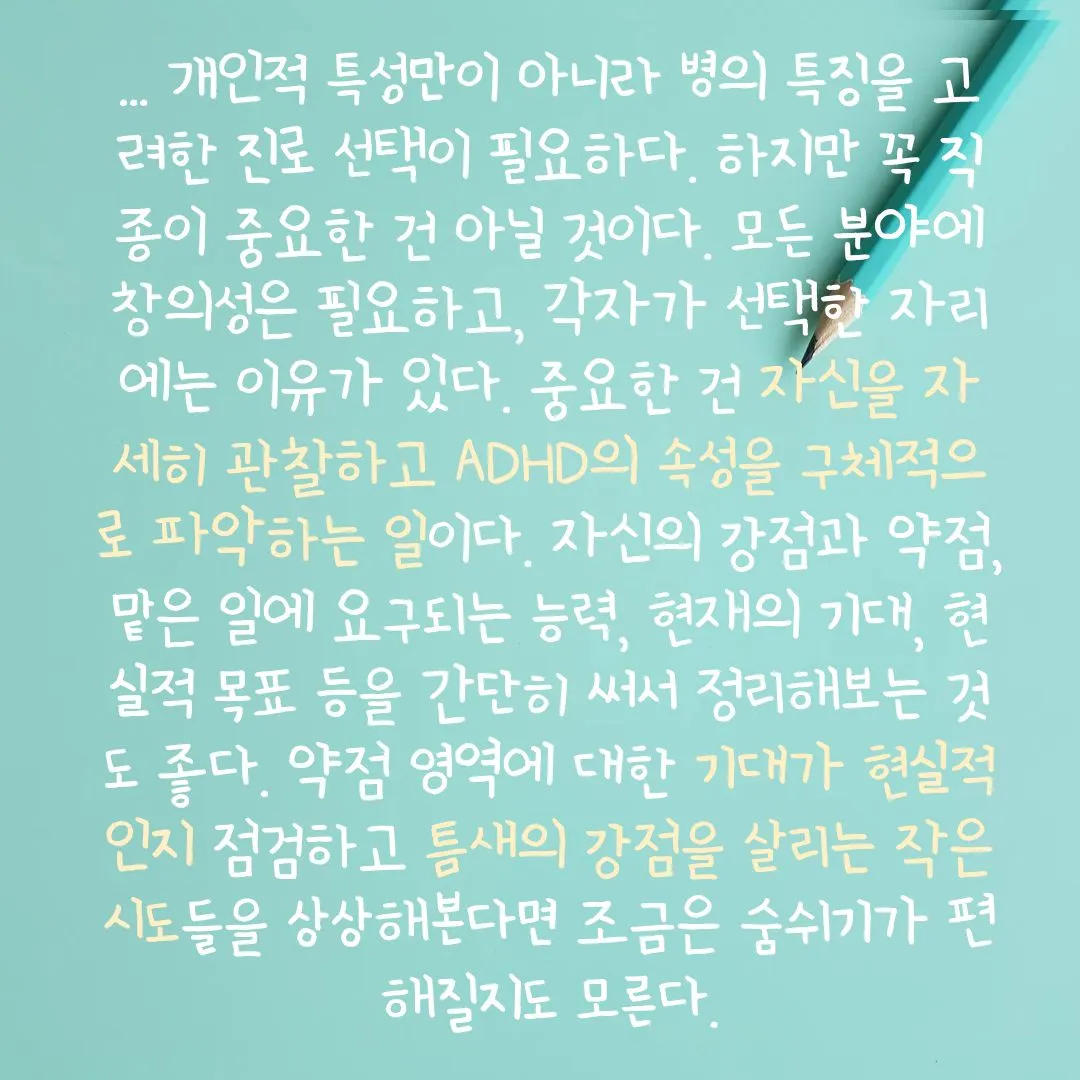 ... 개인적 특성만이 아니라 병의 특징을 고
려한 진로 선택이 필요하다. 하지만 꼭 직
종이 중요한 건 아닐 것이다. 모든 분야에
창의성은 필요하고, 각자가 선택한 자리
에는 이유가 있다. 중요한 건 자신을 자
세히 관찰하고 ADHD의 속성을 구체적으
로 파악하는 일이다. 자신의 강점과 약점,
맡은 일에 요구되는 능력, 현재의 기대, 현
실적 목표 등을 간단히 써서 정리해보는 것
도 좋다. 약점 영역에 대한 기대가 현실적
인지 점검하고 틈새의 강점을 살리는 작은
시도들을 상상해본다면 조금은 숨쉬기가 편
해질지도 모른다.